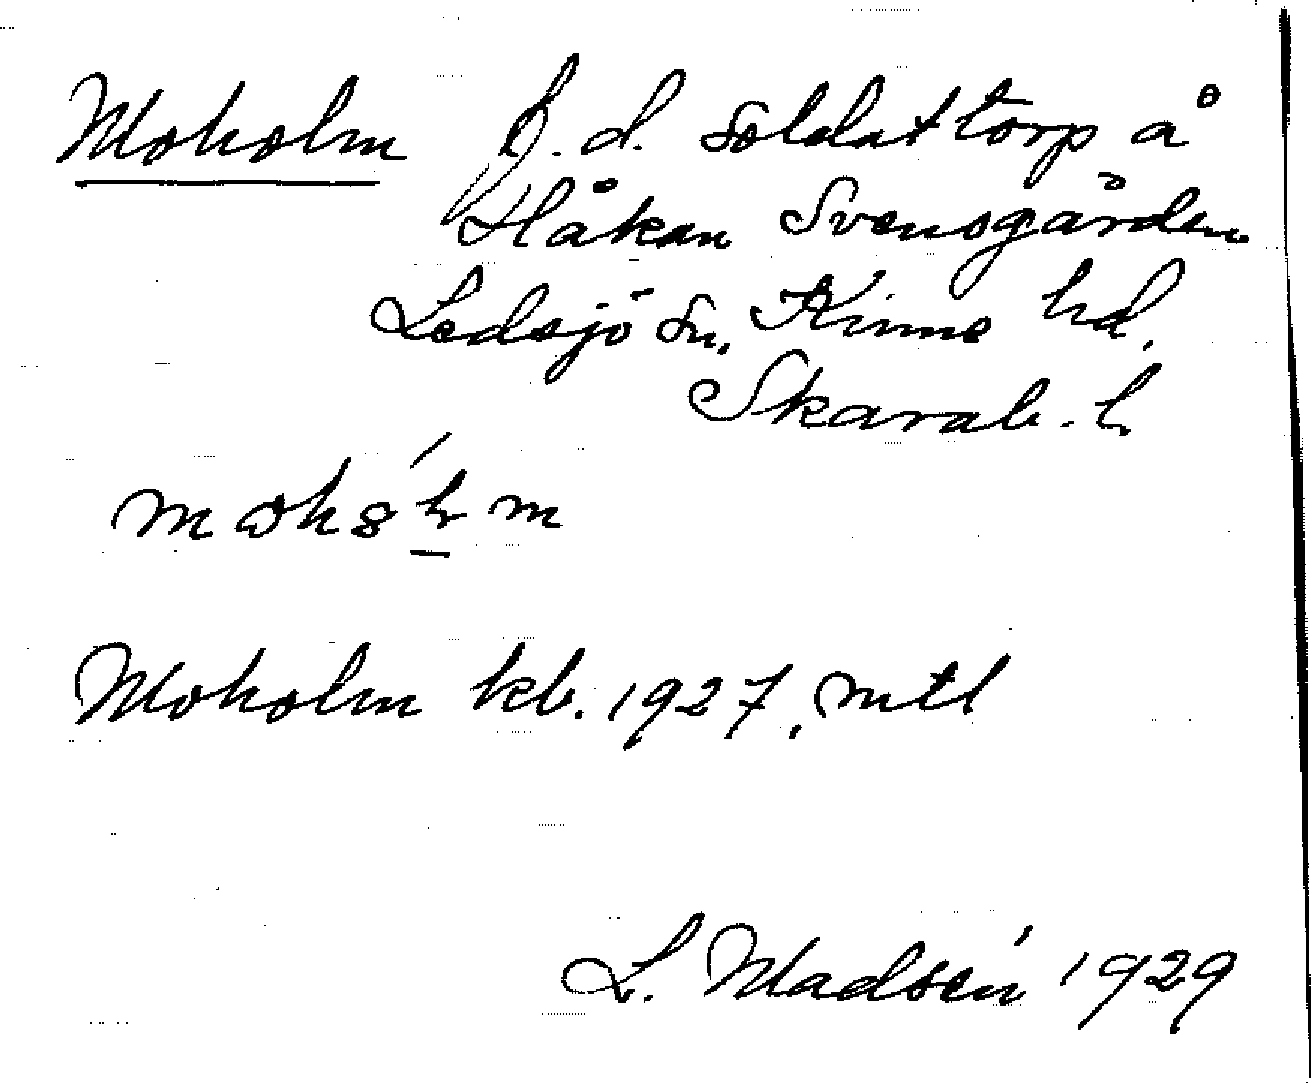 Moholm f.d. soldattorp å
Håkan Svensgården
Ledsjö sn, Kinne hd,
Skarab. l.
Moholm kb. 1927, mtl
L. Madsén 1929